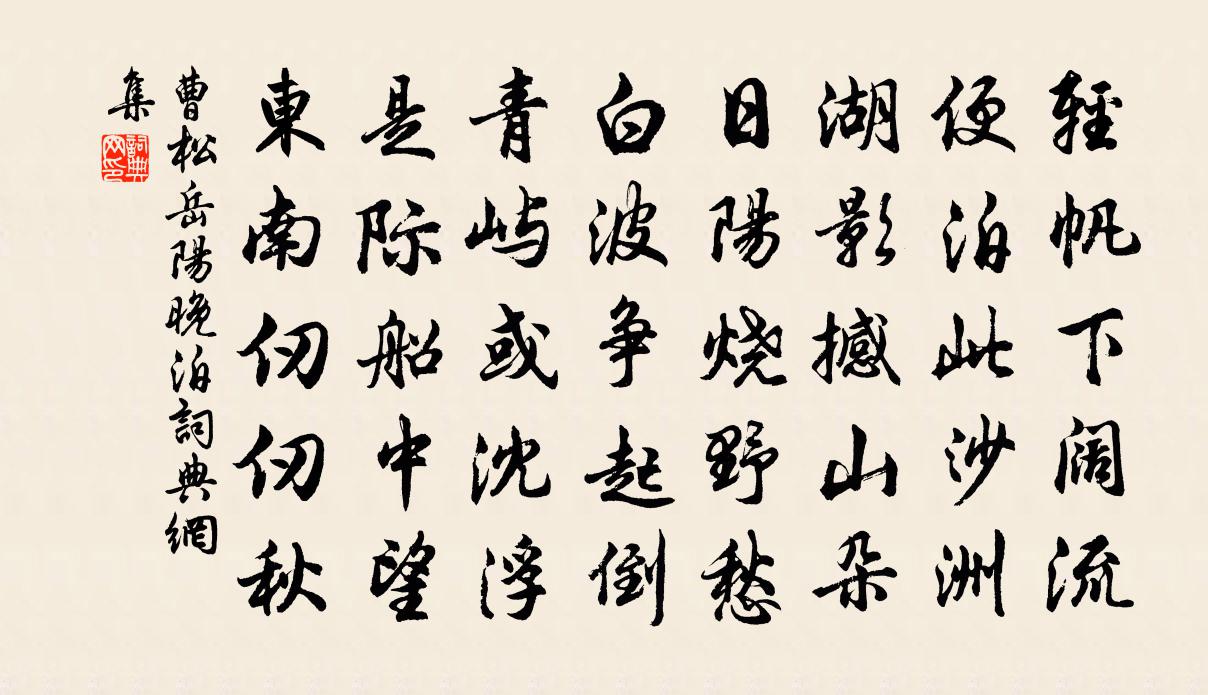 輕帆下阔流
便泊此沙洲
湖影撼山朵
日陽烧野愁
白波争起倒
青屿或沈浮
是际船中望
東南仞仞秋
曹松岳陽晚泊詞典網
集
詞典
网印